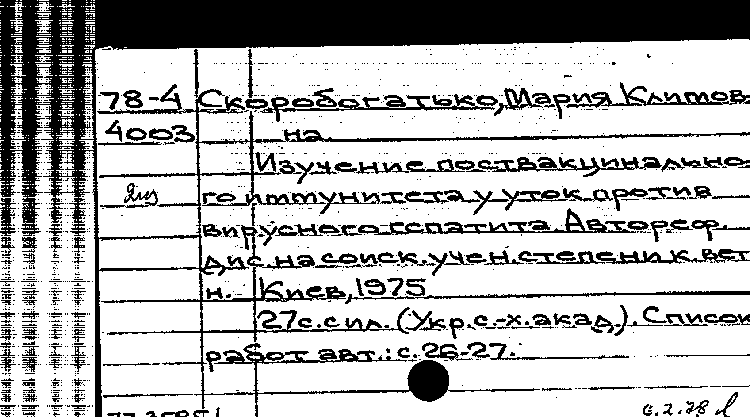 78-4 Скоробогатько, Мария Климов-
4003 на
Изучение поствакцинально-
го иммунитета у уток против
вирусного гепатита. Автореф.
дис. на соиск. учен. степени к. вет.
н. Киев, 1975
27 с. с ил. (Укр. с.-х. акад.). Список
работ авт.: с. 26-27.
6.2.78